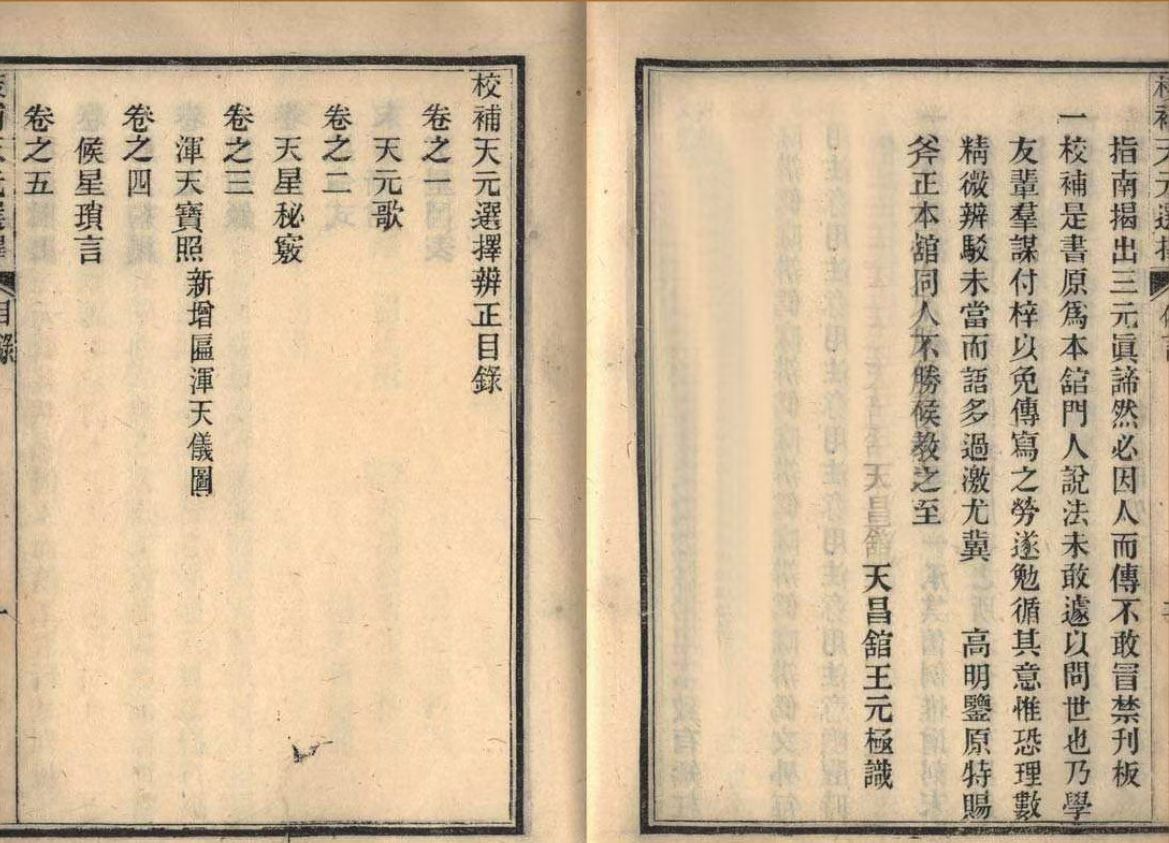 指南揭出三元眞諦然必因人而傳不敢冒禁刊板
一校補是書原爲本舘門人說法未敢遽以問世也乃學
友輩羣謀付梓以免傳寫之勞遂勉循其意惟恐理數
精微辨駁未當而語多過激尤冀　高明鑒原特賜
斧正本舘同人不勝候教之至
天昌舘王元極識
校補天元選擇辨正目錄
卷之一
天元歌
卷之二
天星秘竅
卷之三
渾天寶照 新增區渾天儀圖
卷之四
候星瑣言
卷之五
目錄
一